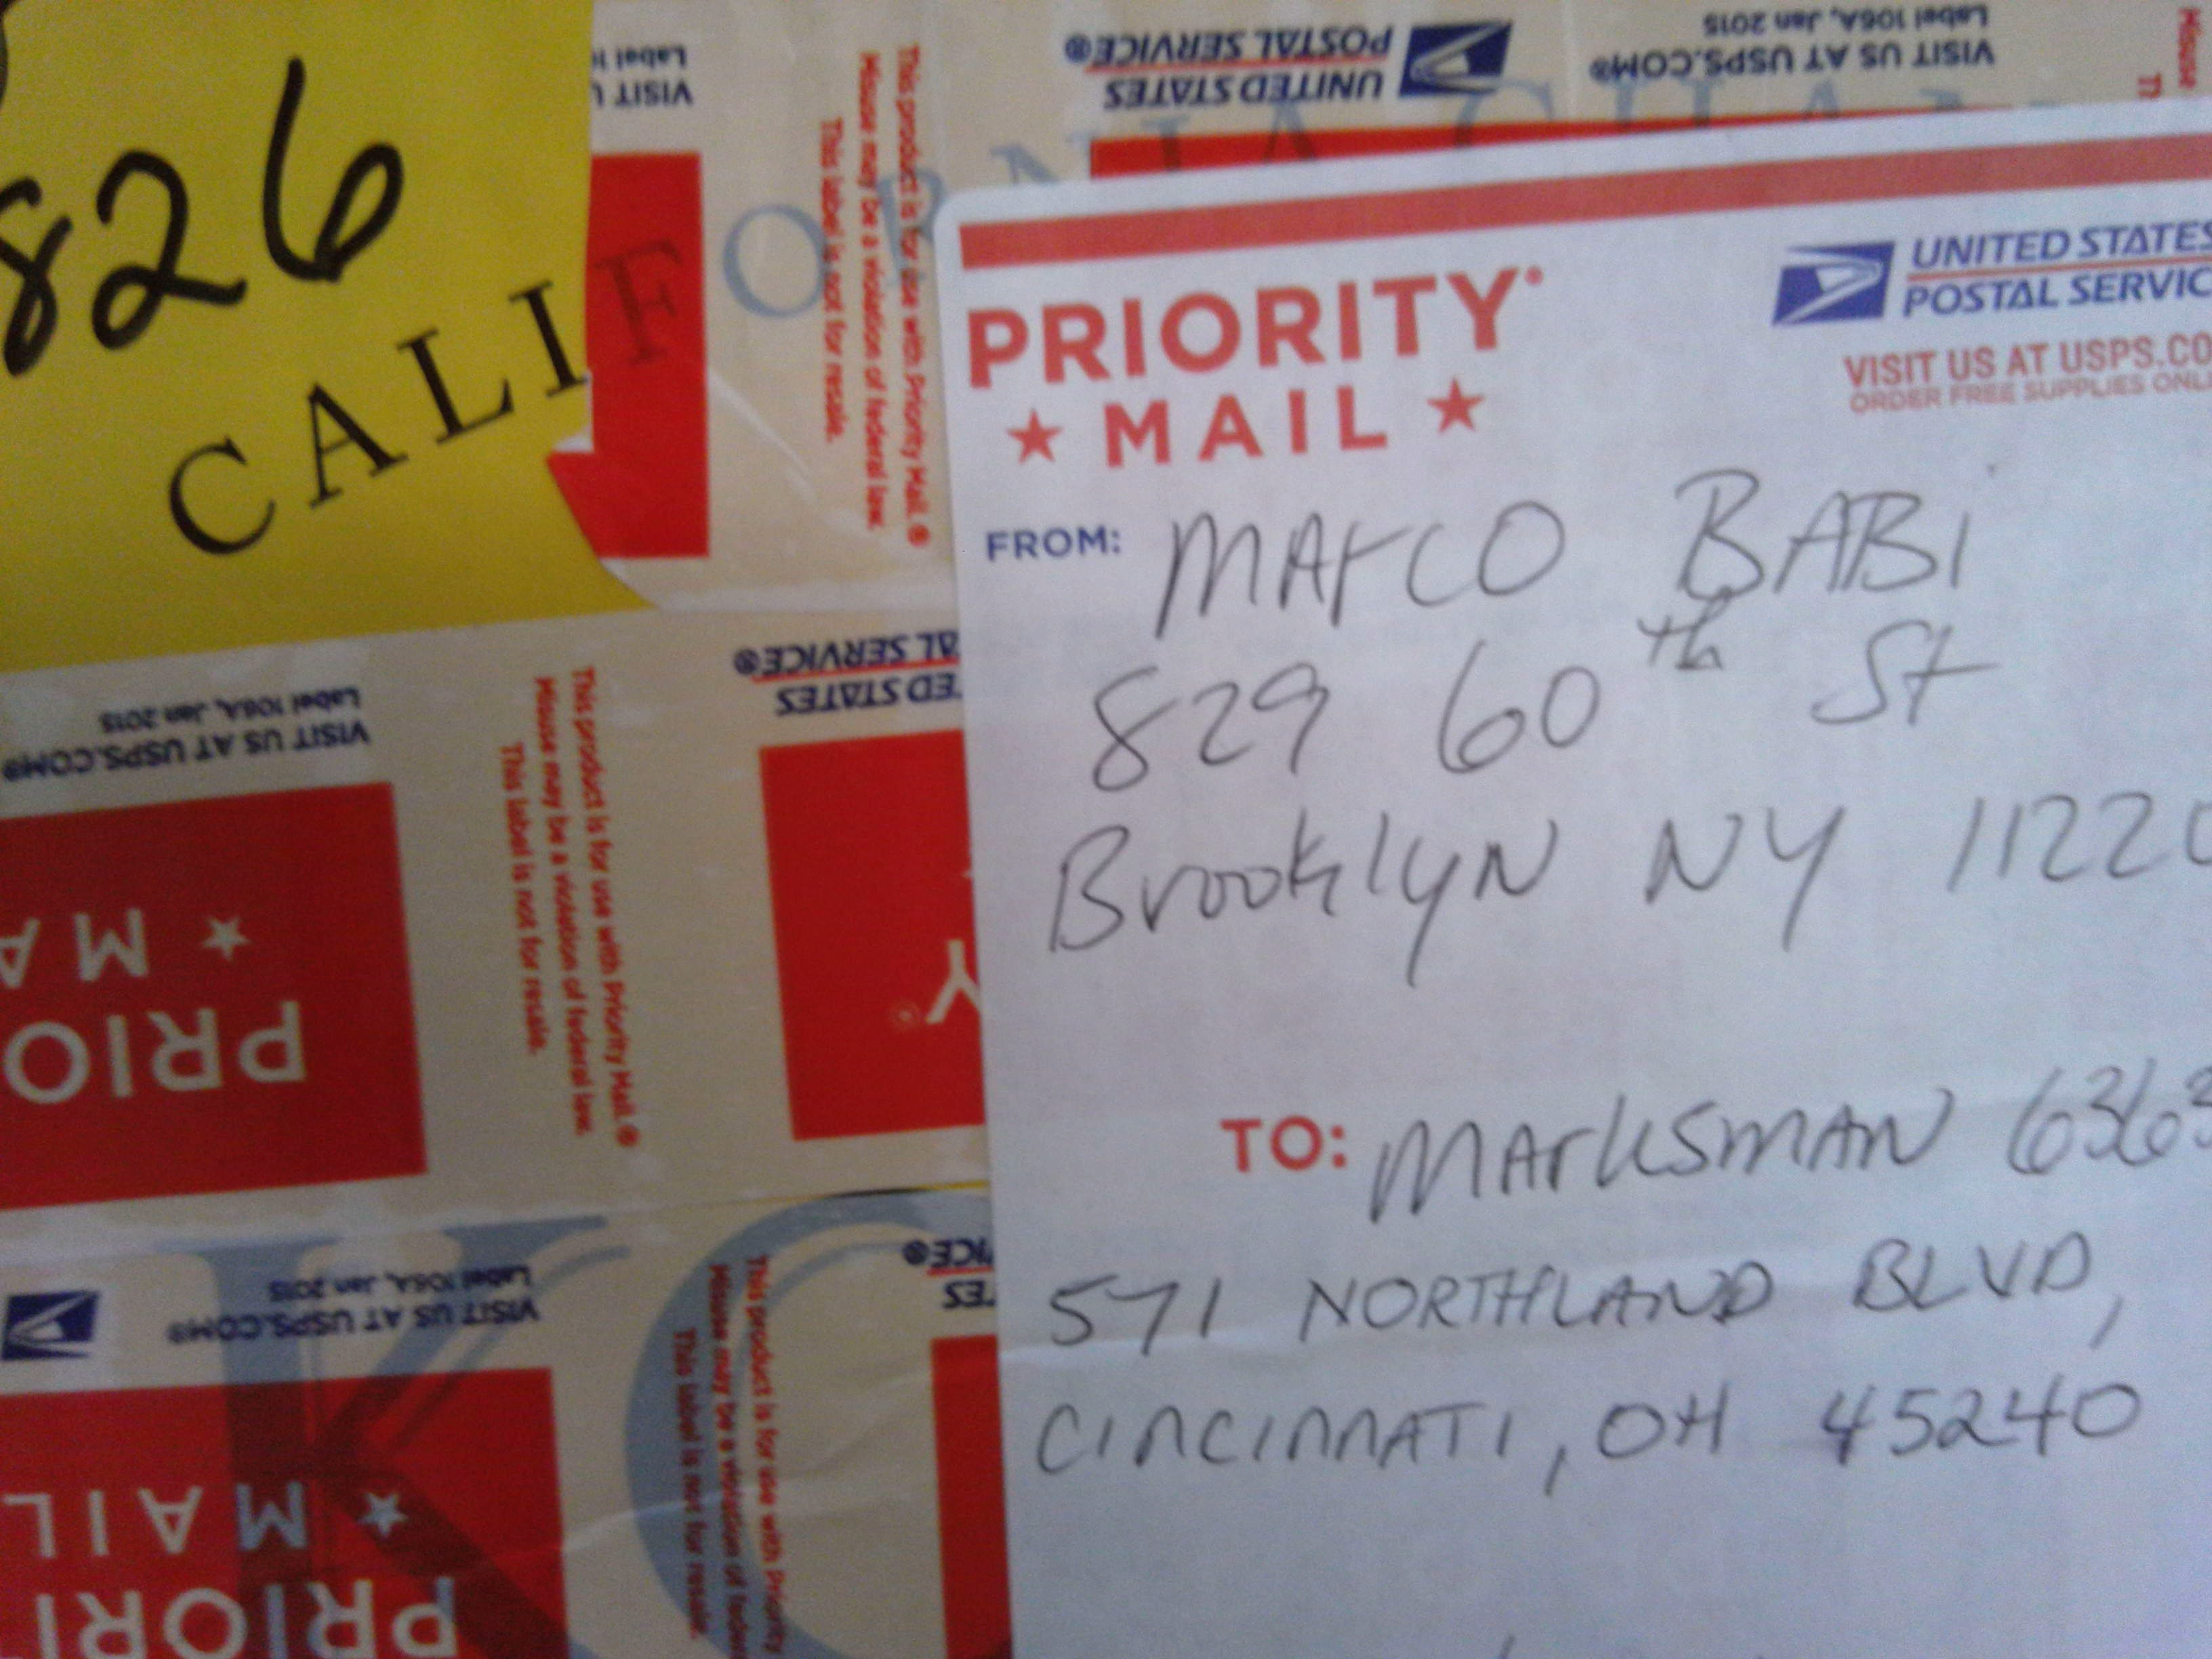 826
CALIFORNIA
VISIT U
Label 1
This product is for use with Priority Mail.®
Misuse may be a violation of federal law.
This label is not for resale.
UNITED STATES
POSTAL SERVICE®
VISIT US AT USPS.COM®
Label 106A, Jan 2015
PRIORITY
★ MAIL ★
UNITED STATES
POSTAL SERVIC
VISIT US AT USPS.CO
ORDER FREE SUPPLIES ONL
FROM: Marco BABi
829 60th St
Brooklyn NY 1122
TO: MArksmAN 6363
571 NORTHLAND BLVD,
CINCINNATI, OH 45240
ED STATES
AL SERVICE®
VISIT US AT USPS.COM®
Label 106A, Jan 2015
This product is for use with Priority Mail.®
Misuse may be a violation of federal law.
This label is not for resale.
PRIO
★ MA
Y
TES
ICE®
VISIT US AT USPS.COM®
Label 106A, Jan 2015
This product is for use with Priority
Misuse may be a violation of federal
This label is not for resale.
PRIORI
★ MAIL